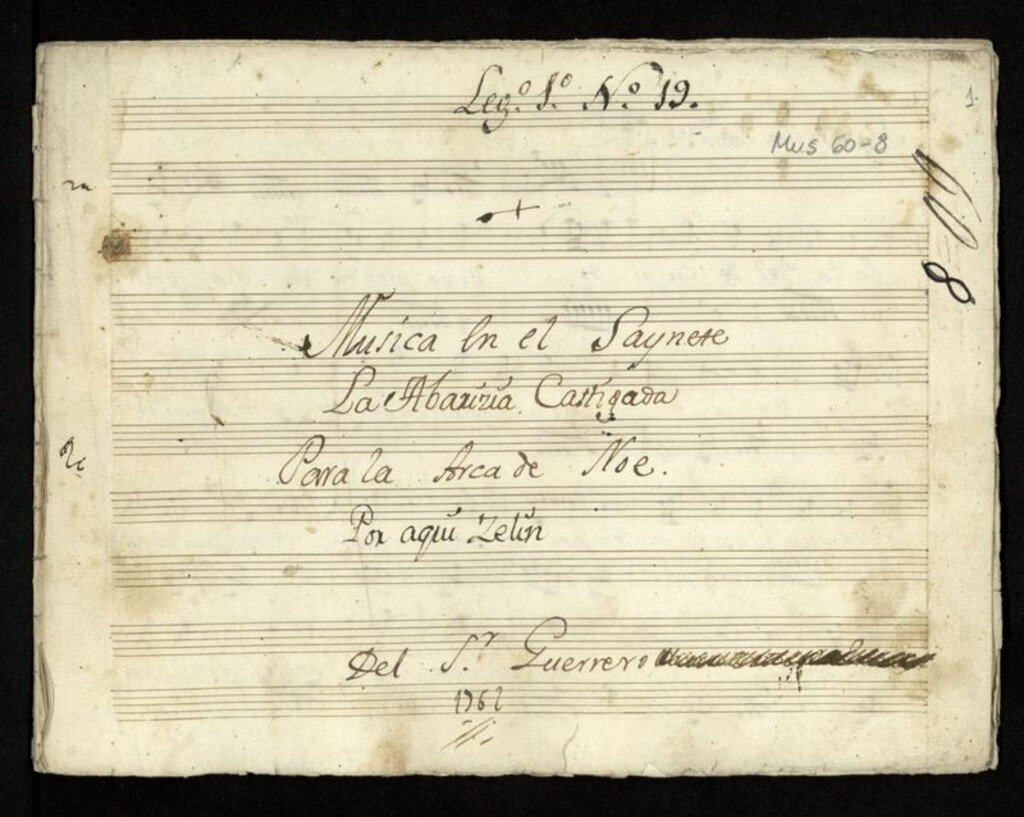 Leg.º 1.º N.º 19.
1.
Mus 60-8
8
Musica en el Saynete
La Abarizia Castigada
Para la Arca de Noe.
Por aqui Zelin
Del S.r Guerrero
1762